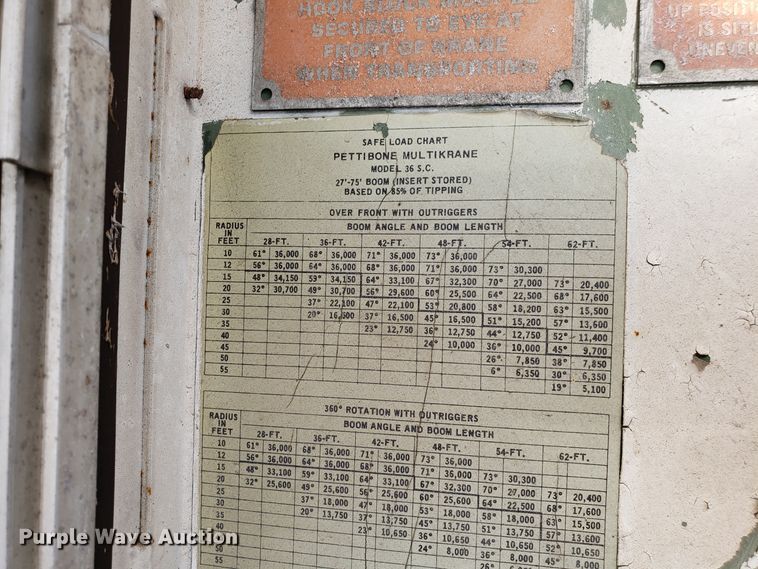 HOOK BLOCK MUST BE
SECURED TO EYE AT
FRONT OF KRANE
WHEN TRANSPORTING
UP POSITI
IS SITU
UNEVEN
SAFE LOAD CHART
PETTIBONE MULTIKRANE
MODEL 36 S.C.
27'-75' BOOM (INSERT STORED)
BASED ON 85% OF TIPPING
OVER FRONT WITH OUTRIGGERS
RADIUS IN FEET BOOM ANGLE AND BOOM LENGTH
28-FT. 36-FT. 42-FT. 48-FT. 54-FT. 62-FT.
10 61° 36,000 68° 36,000 71° 36,000 73° 36,000
12 56° 36,000 64° 36,000 68° 36,000 71° 36,000 73° 30,300
15 48° 34,150 59° 34,150 64° 33,100 67° 32,300 70° 27,000 73° 20,400
20 32° 30,700 49° 30,700 56° 29,600 60° 25,500 64° 22,500 68° 17,600
25 37° 22,100 47° 22,100 53° 20,800 58° 18,200 63° 15,500
30 20° 16,500 37° 16,500 45° 16,500 51° 15,200 57° 13,600
35 23° 12,750 36° 12,750 44° 12,750 52° 11,400
40 24° 10,000 36° 10,000 45° 9,700
45 26° 7,850 38° 7,850
50 6° 6,350 30° 6,350
55 19° 5,100
360° ROTATION WITH OUTRIGGERS
RADIUS IN FEET BOOM ANGLE AND BOOM LENGTH
28-FT. 36-FT. 42-FT. 48-FT. 54-FT. 62-FT.
10 61° 36,000 68° 36,000 71° 36,000 73° 36,000
12 56° 36,000 64° 36,000 68° 36,000 71° 36,000 73° 30,300
15 48° 33,100 59° 33,100 64° 33,100 67° 32,300 70° 27,000 73° 20,400
20 32° 25,600 49° 25,600 56° 25,600 60° 25,600 64° 22,500 68° 17,600
25 37° 18,000 47° 18,000 53° 18,000 58° 18,000 63° 15,500
30 20° 13,750 37° 13,750 45° 13,750 51° 13,750 57° 13,600
35 23° 10,650 36° 10,650 44° 10,650 52° 10,650
40 24° 8,000 36° 8,000 45° 8,000
45 26°
50
55
Purple Wave Auction